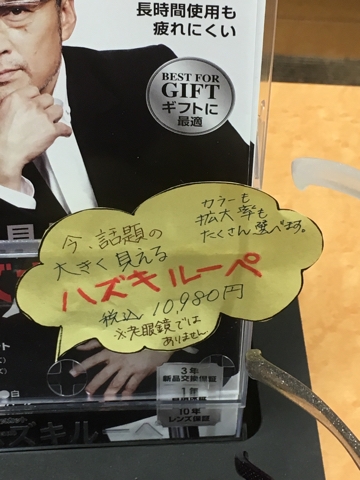 長時間使用も
疲れにくい
BEST FOR
GIFT
ギフトに
最適
カラーも
拡大率も
たくさん選べます。
今、話題の
大きく見える
ハズキルーペ
税込 10,980円
※老眼鏡では
ありません
3年
新品交換保証
1年
10年
レンズ保証